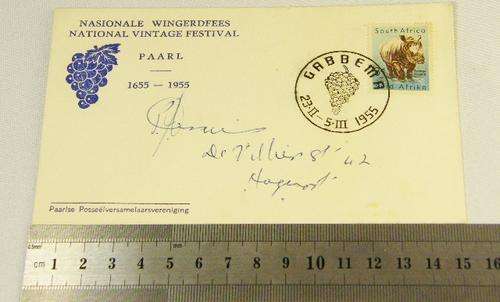 NASIONALE WINGERDFEES
NATIONAL VINTAGE FESTIVAL
PAARL
1655 — 1955
GABBEMA
23-II-5-III 1955
South Africa
Afrika
De Villiers St 42
Paarlse Posseëlversamelaarsvereniging
0.5mm mm
cm 1 2 3 4 5 6 7 8 9 10 11 12 13 14 15 16